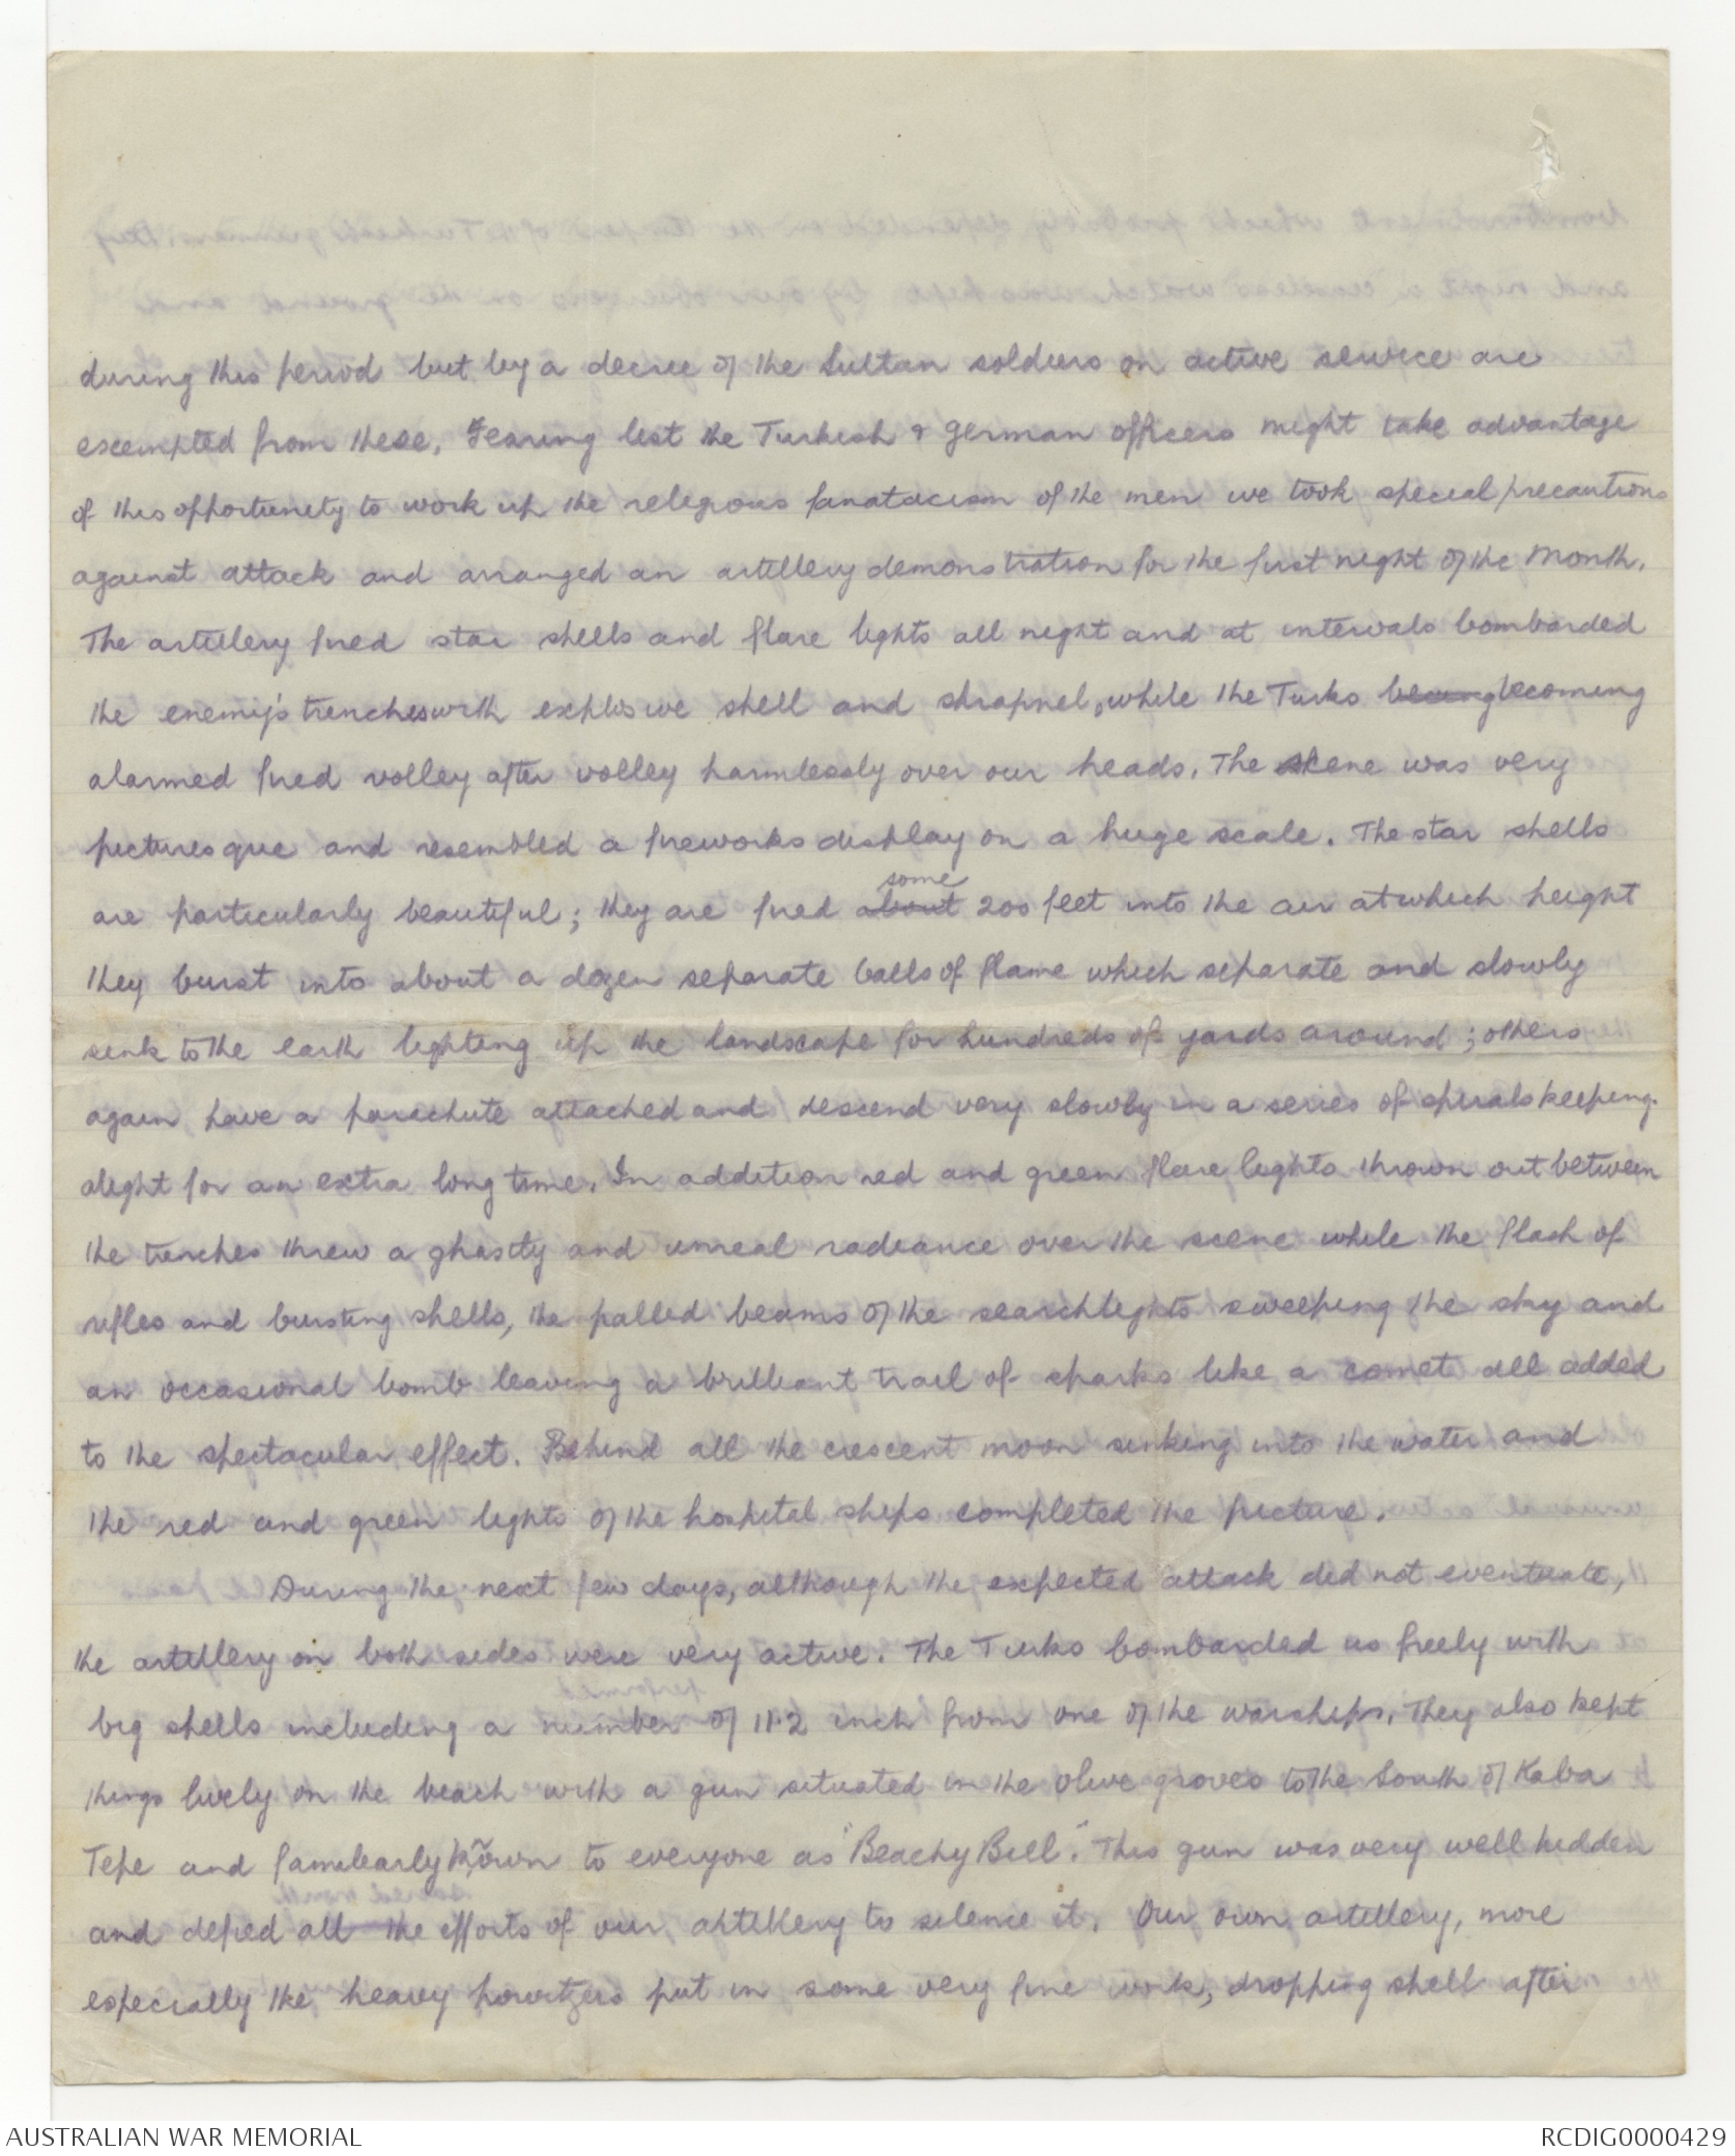 during this period but by a decree of the Sultan soldiers on active service are
excempted from these. Fearing lest the Turkish & German officers might take advantage
of this opportunity to work up the religious fanatacism of the men we took special precautions
against attack and arranged an artillery demonstration for the first night of the Month.
The artillery fired star shells and flare lights all night and at intervals bombarded
the enemy's trenches with explosive shell and shrapnel, while the Turks being becoming
alarmed fired volley after volley harmlessly over our heads. The scene was very
picturesque and resembled a fireworks display on a huge scale. The star shells
some
are particularly beautiful; they are fired about 200 feet into the air at which height
they burst into about a dozen separate balls of flame which separate and slowly
sink to the earth lighting up the landscape for hundreds of yards around; others
again have a parachute attached and descend very slowly in a series of spirals keeping
alight for an extra long time. In addition red and green flare lights thrown out between
the trenches threw a ghastly and unreal radiance over the scene while the flash of
rifles and bursting shells, the pallid beams of the searchlights sweeping the sky and
an occasional bomb leaving a brilliant trail of sparks like a comet all added
to the spectacular effect. Behind all the crescent moon sinking into the water and
the red and green lights of the hospital ships completed the picture.
During the next few days, although the expected attack did not eventuate,
the artillery on both sides were very active. The Turks bombarded us freely with
big shells including a number of 11.2 inch from one of the warships. They also kept
things lively on the beach with a gun situated in the olive groves to the South of Kaba
Tepe and familiarly known to everyone as "Beachy Bill". This gun was very well hidden
and defied all the efforts of our artillery to silence it. Our own artillery, more
especially the heavy howitzers put in some very fine work, dropping shell after
AUSTRALIAN WAR MEMORIAL
RCDIG0000429